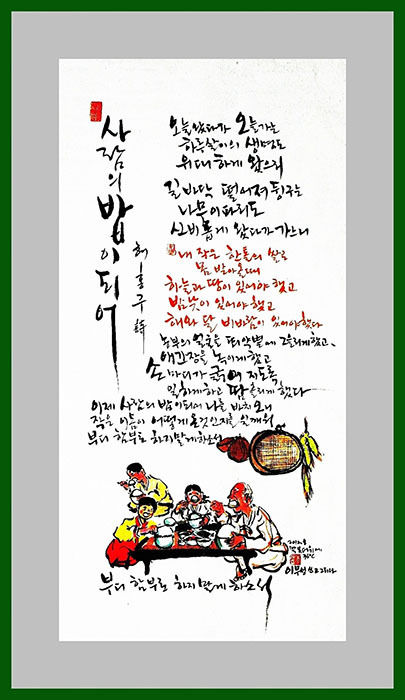 사람의 밥이 되어
허홍구 詩
오늘 왔다가 오늘 가는
하루살이의 생명도
위대하게 왔으리
길바닥 떨어져 뒹구는
나무이파리도
신비롭게 왔다가 가느니
내 작은 한톨의 쌀로
몸 받아올 때
하늘과 땅이 있어야 했고
밤낮이 있어야 했고
해와 달 비바람이 있어야 했다
농부의 얼굴을 뙤약볕에 그을리게 했고,
애간장을 녹이게 했고
손마디가 굵어 지도록
일하게 하고 땀 흘리게 했다
이제 사람의 밥이 되어 나를 바치오니
작은 이름이 어떻게 온 것인지를
부디 함부로 하지 말게 하소서
부디 함부로 하지 말게 하소서